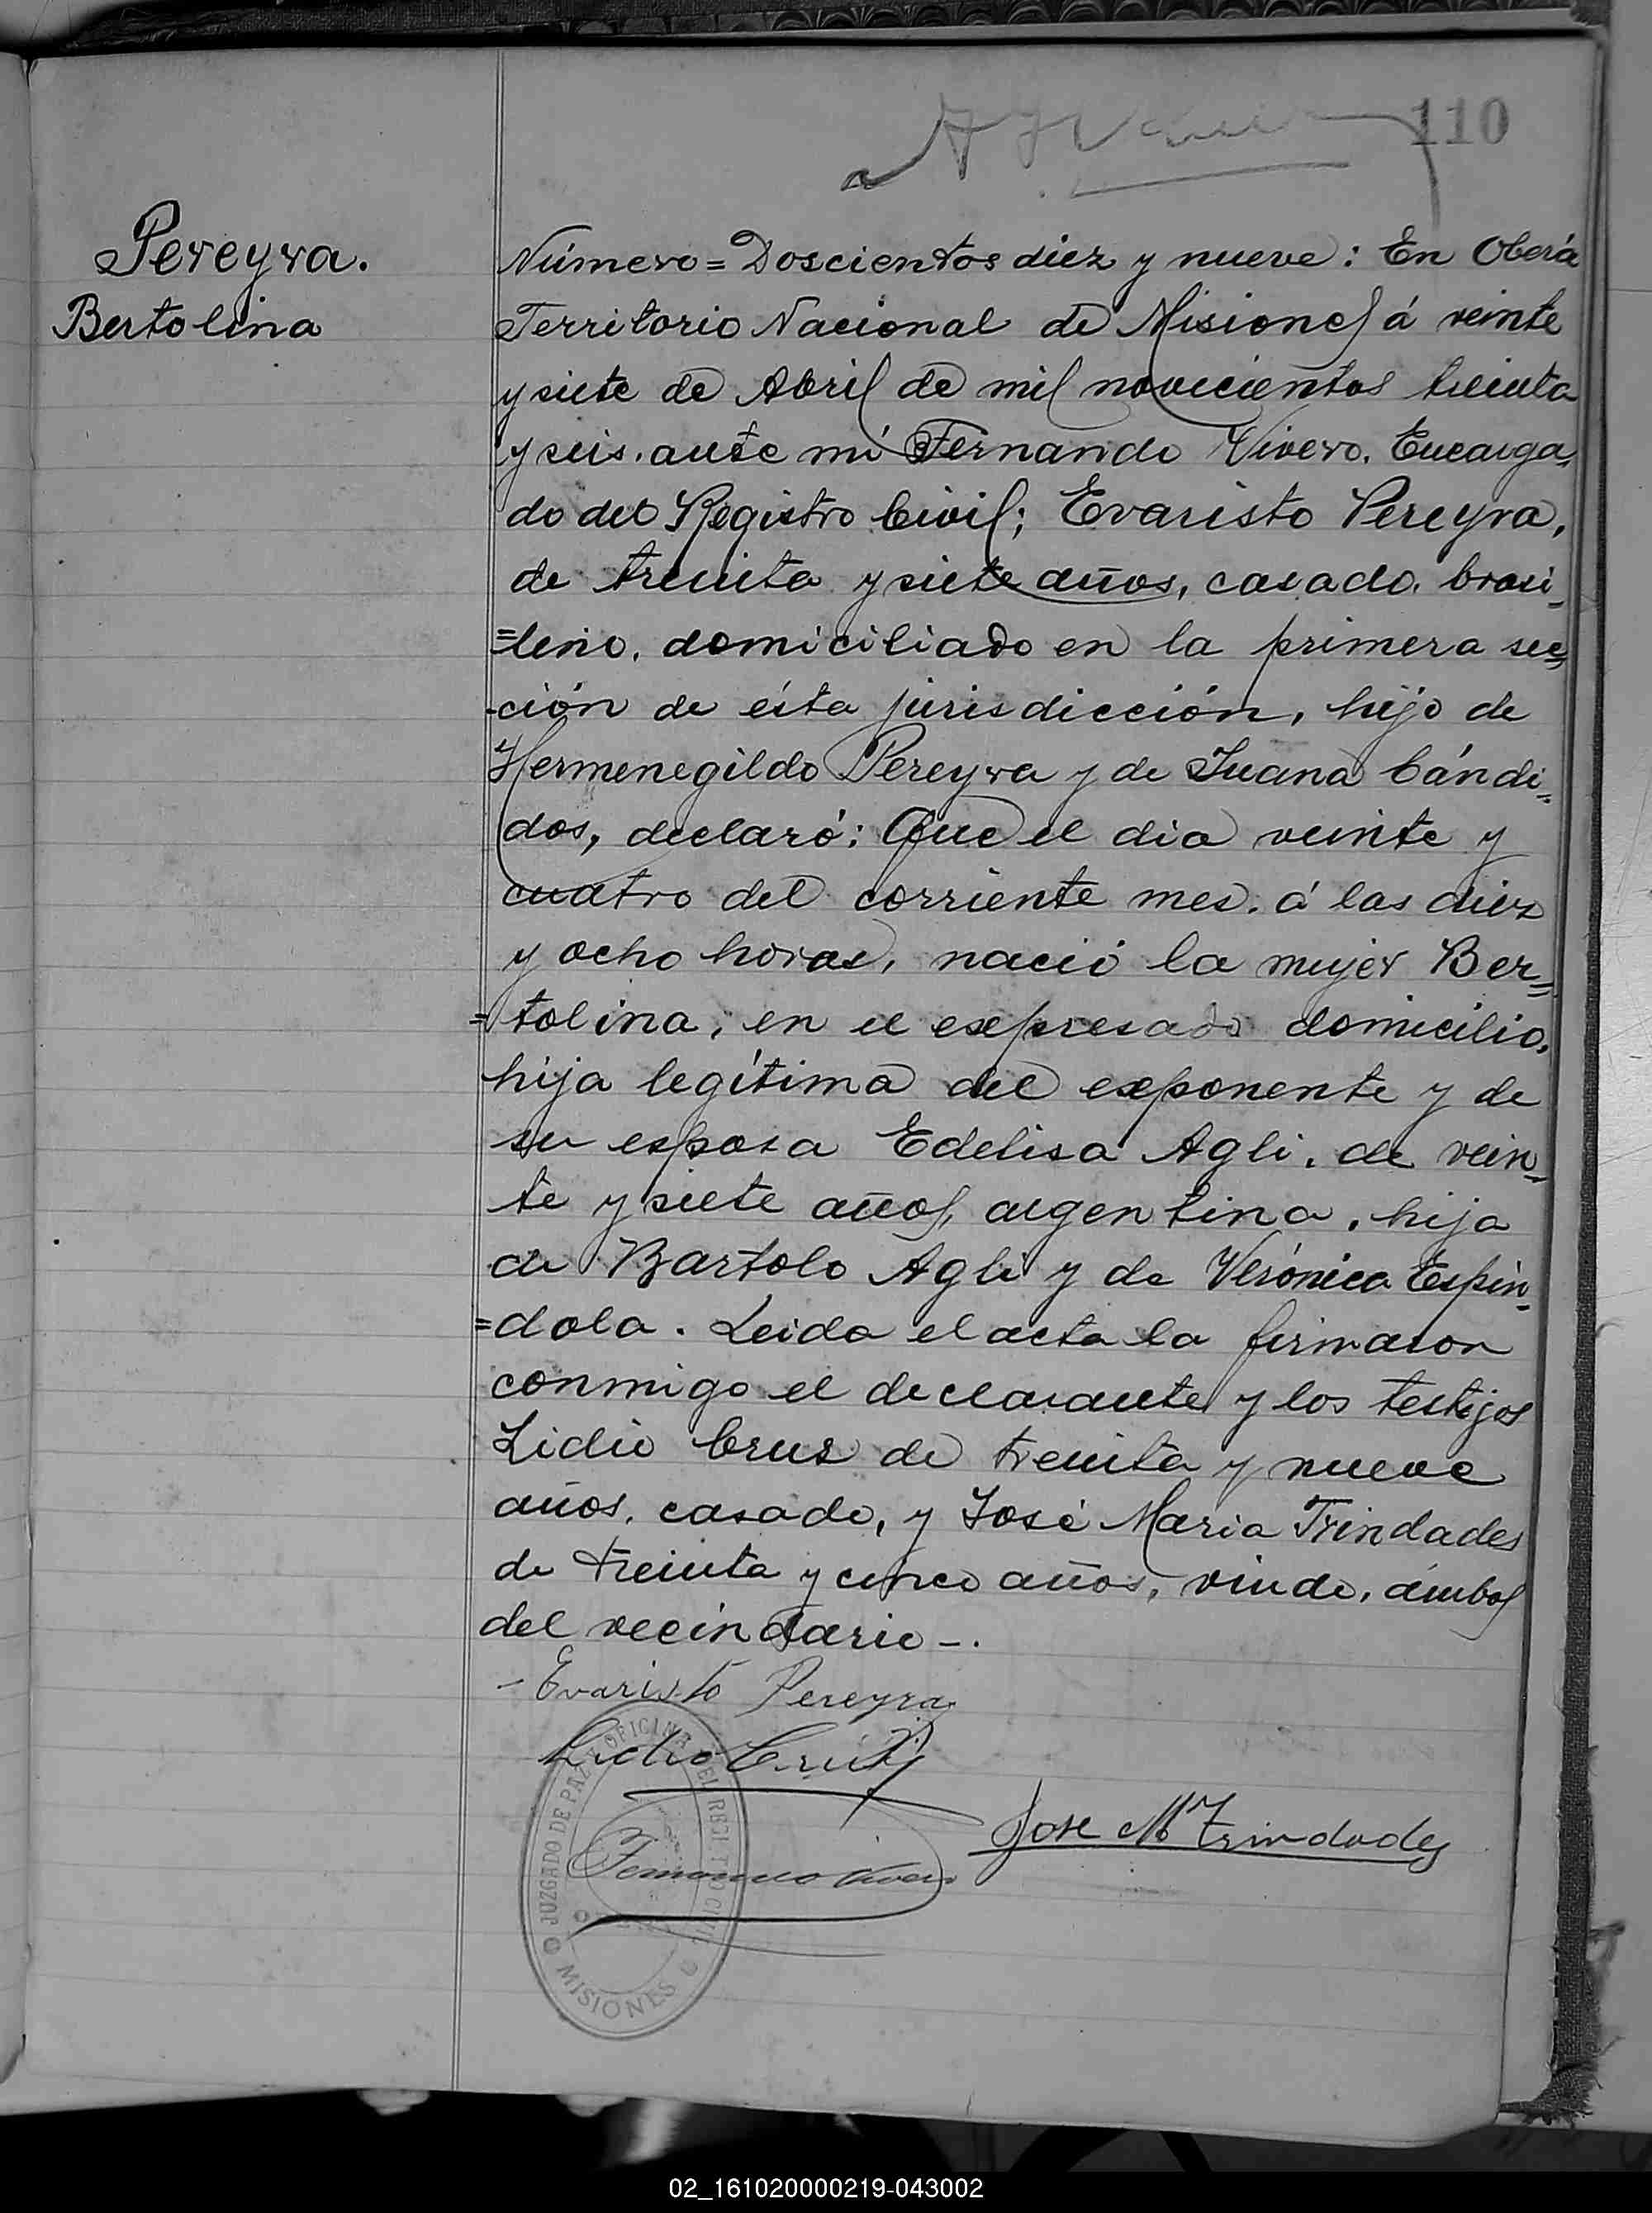 110
Pereyra.
Bertolina
Número = Doscientos diez y nueve: En Oberá
Territorio Nacional de Misiones á veinte
y siete de Abril de mil novecientos treinta
y seis. ante mi Fernando Vivero. Encarga,
do del Registro Civil; Evaristo Pereyra,
de treinta y siete años, casado. brasi_
=leño. domiciliado en la primera sec=
-ción de ésta jurisdicción, hijo de
Hermenegildo Pereyra y de Juana Cándi=
dos, declaró: Que el dia veinte y
cuatro del corriente mes. á las diez
y ocho horas, nació la mujer Ber=
=tolina, en el expresado domicilio,
hija legítima del exponente y de
su esposa Edelisa Agli, de vein=
te y siete años, argentina, hija
de Bartolo Agli y de Verónica Espin=
=dola. Leida el acta la firmaron
conmigo el declarante y los testigos
Lidio Cruz de treinta y nueve
años, casado, y José Maria Trindades
de treinta y cinco años, viudo, ámbos
del vecindario -.
- Evaristo Pereyra
Lidio Cruz
Jose Ma Trindades
Fernando Vivero
JUZGADO DE PAZ Y OFICINA DEL REGISTRO CIVIL
MISIONES
02_161020000219-043002